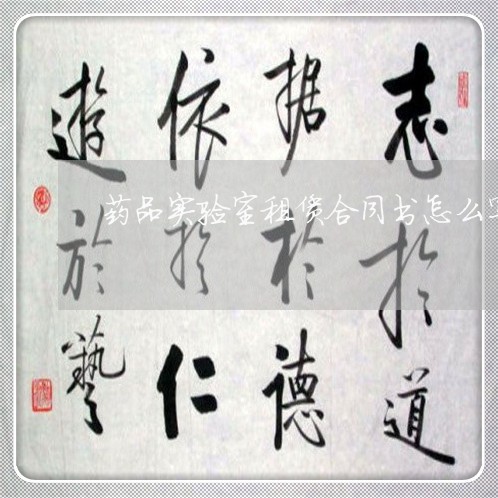 志於道
据於德
依於仁
遊於藝
药品实验室租赁合同书怎么